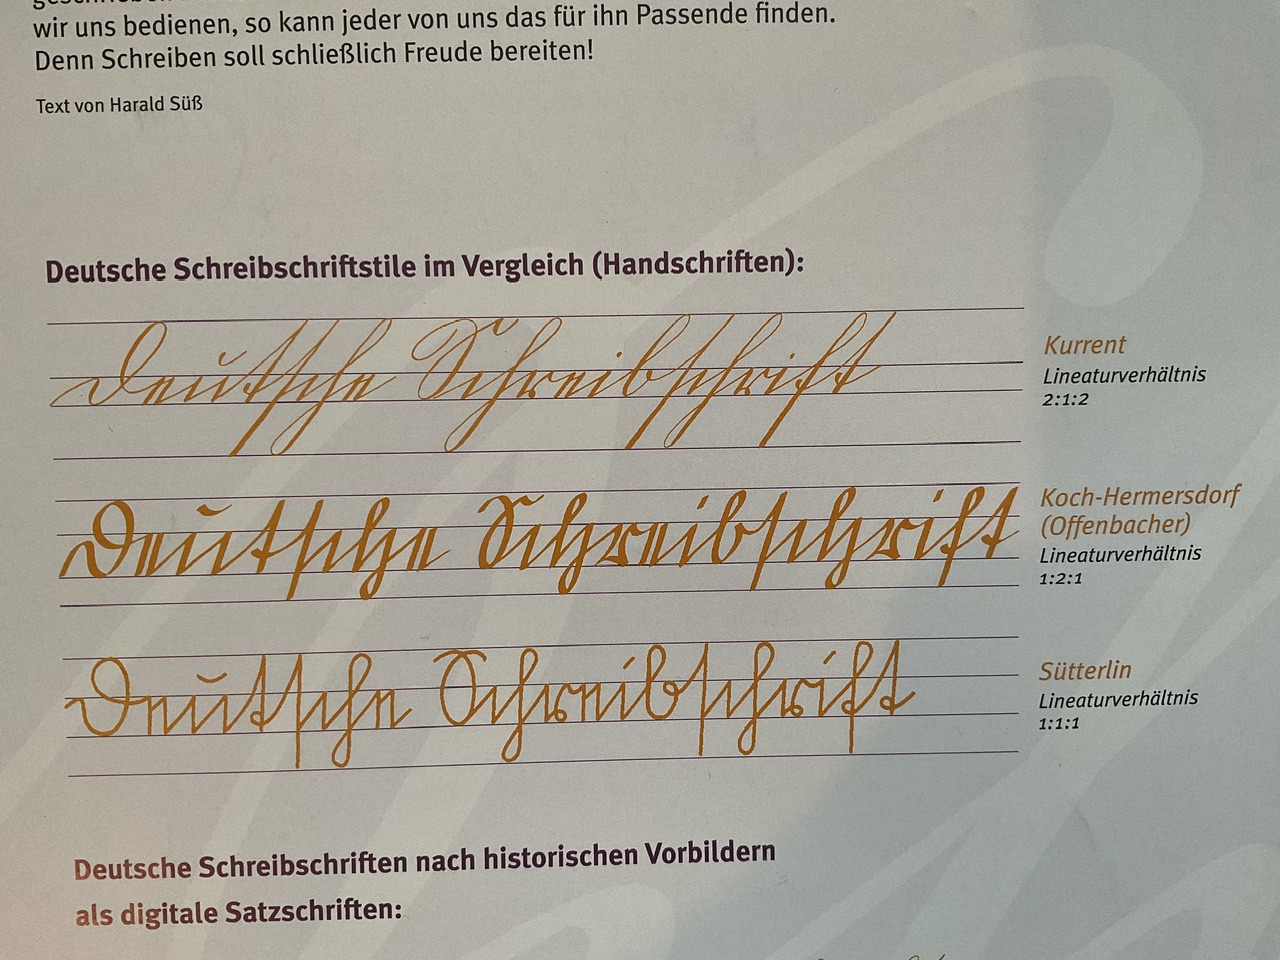 wir uns bedienen, so kann jeder von uns das für ihn Passende finden.
Denn Schreiben soll schließlich Freude bereiten!
Text von Harald Süß
Deutsche Schreibschriftstile im Vergleich (Handschriften):
Deutsche Schreibschrift
Kurrent
Lineaturverhältnis
2:1:2
Deutsche Schreibschrift
Koch-Hermersdorf
(Offenbacher)
Lineaturverhältnis
1:2:1
Deutsche Schreibschrift
Sütterlin
Lineaturverhältnis
1:1:1
Deutsche Schreibschriften nach historischen Vorbildern
als digitale Satzschriften: